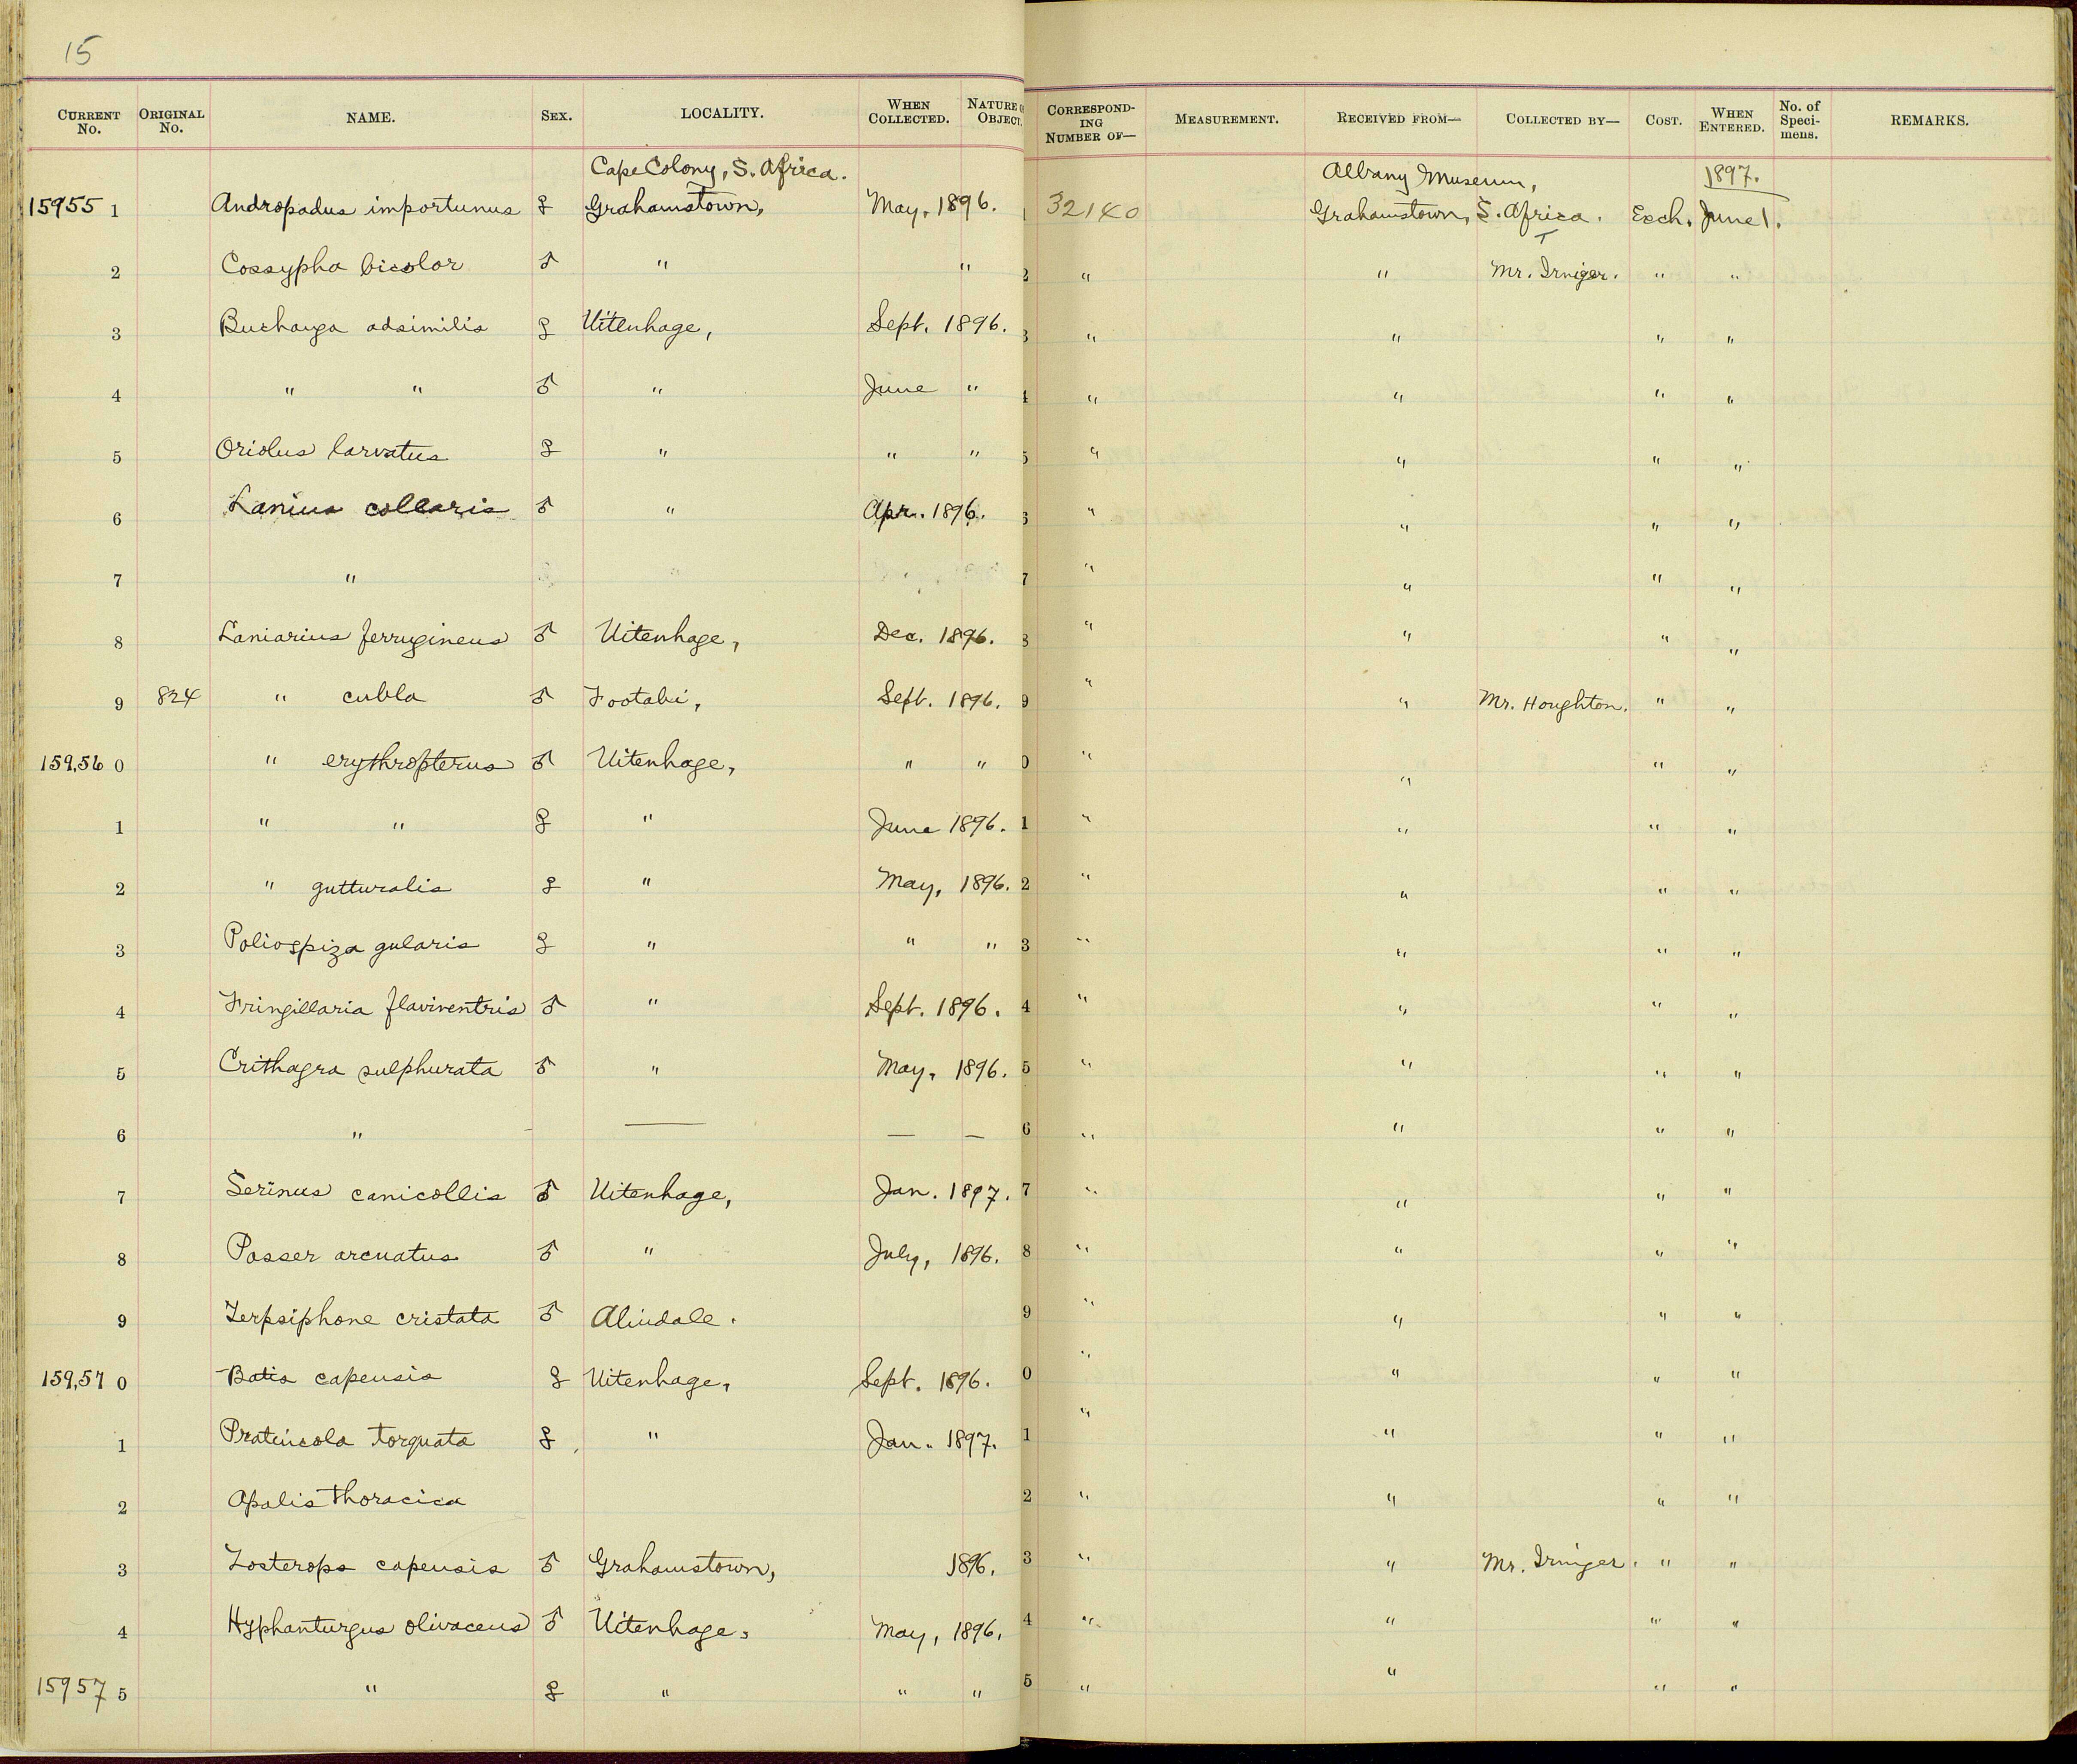 15
CURRENT No. ORIGINAL No. NAME. SEX. LOCALITY. WHEN COLLECTED. NATURE OF OBJECT. CORRESPONDING NUMBER OF— MEASUREMENT. RECEIVED FROM— COLLECTED BY— COST. WHEN ENTERED. No. of Specimens. REMARKS.
Cape Colony, S. Africa. Albany Museum, 1897.
15955 1 Andropadus importunus ♀ Grahamstown, May, 1896. 1 32140 Grahamstown, S. Africa. Exch. June 1.
2 Cossypha bicolor ♂ " " 2 " " Mr. Irniger. " "
3 Buchanga adsimilis ♀ Uitenhage, Sept. 1896. 3 " " " "
4 " " ♂ " June " 4 " " " "
5 Oriolus larvatus ♀ " " " 5 " " " "
6 Lanius collaris ♂ " Apr. 1896. 6 " " " "
7 " 7 " " " "
8 Laniarius ferrugineus ♂ Uitenhage, Dec. 1896. 8 " " " "
9 824 " cubla ♂ Footabi, Sept. 1896. 9 " " Mr. Houghton. " "
159,56 0 " erythropterus ♂ Uitenhage, " " 0 " " " "
1 " " ♀ " June 1896. 1 " " " "
2 " gutturalis ♀ " May, 1896. 2 " " " "
3 Poliospiza gularis ♀ " " " 3 " " " "
4 Fringillaria flaviventris ♂ " Sept. 1896. 4 " " " "
5 Crithagra sulphurata ♂ " May, 1896. 5 " " " "
6 " — — — 6 " " " "
7 Serinus canicollis ♂ Uitenhage, Jan. 1897. 7 " " " "
8 Passer arcuatus ♂ " July, 1896. 8 " " " "
9 Terpsiphone cristata ♂ Alindale. 9 " " " "
159,57 0 Batis capensis ♀ Uitenhage, Sept. 1896. 0 " " " "
1 Pratincola torquata ♀ " Jan. 1897. 1 " " " "
2 Apalis thoracica 2 " " " "
3 Zosterops capensis ♂ Grahamstown, 1896. 3 " " Mr. Irniger. " "
4 Hyphanturgus olivaceus ♂ Uitenhage, May, 1896. 4 " " " "
15957 5 " ♀ " " " 5 " " " "